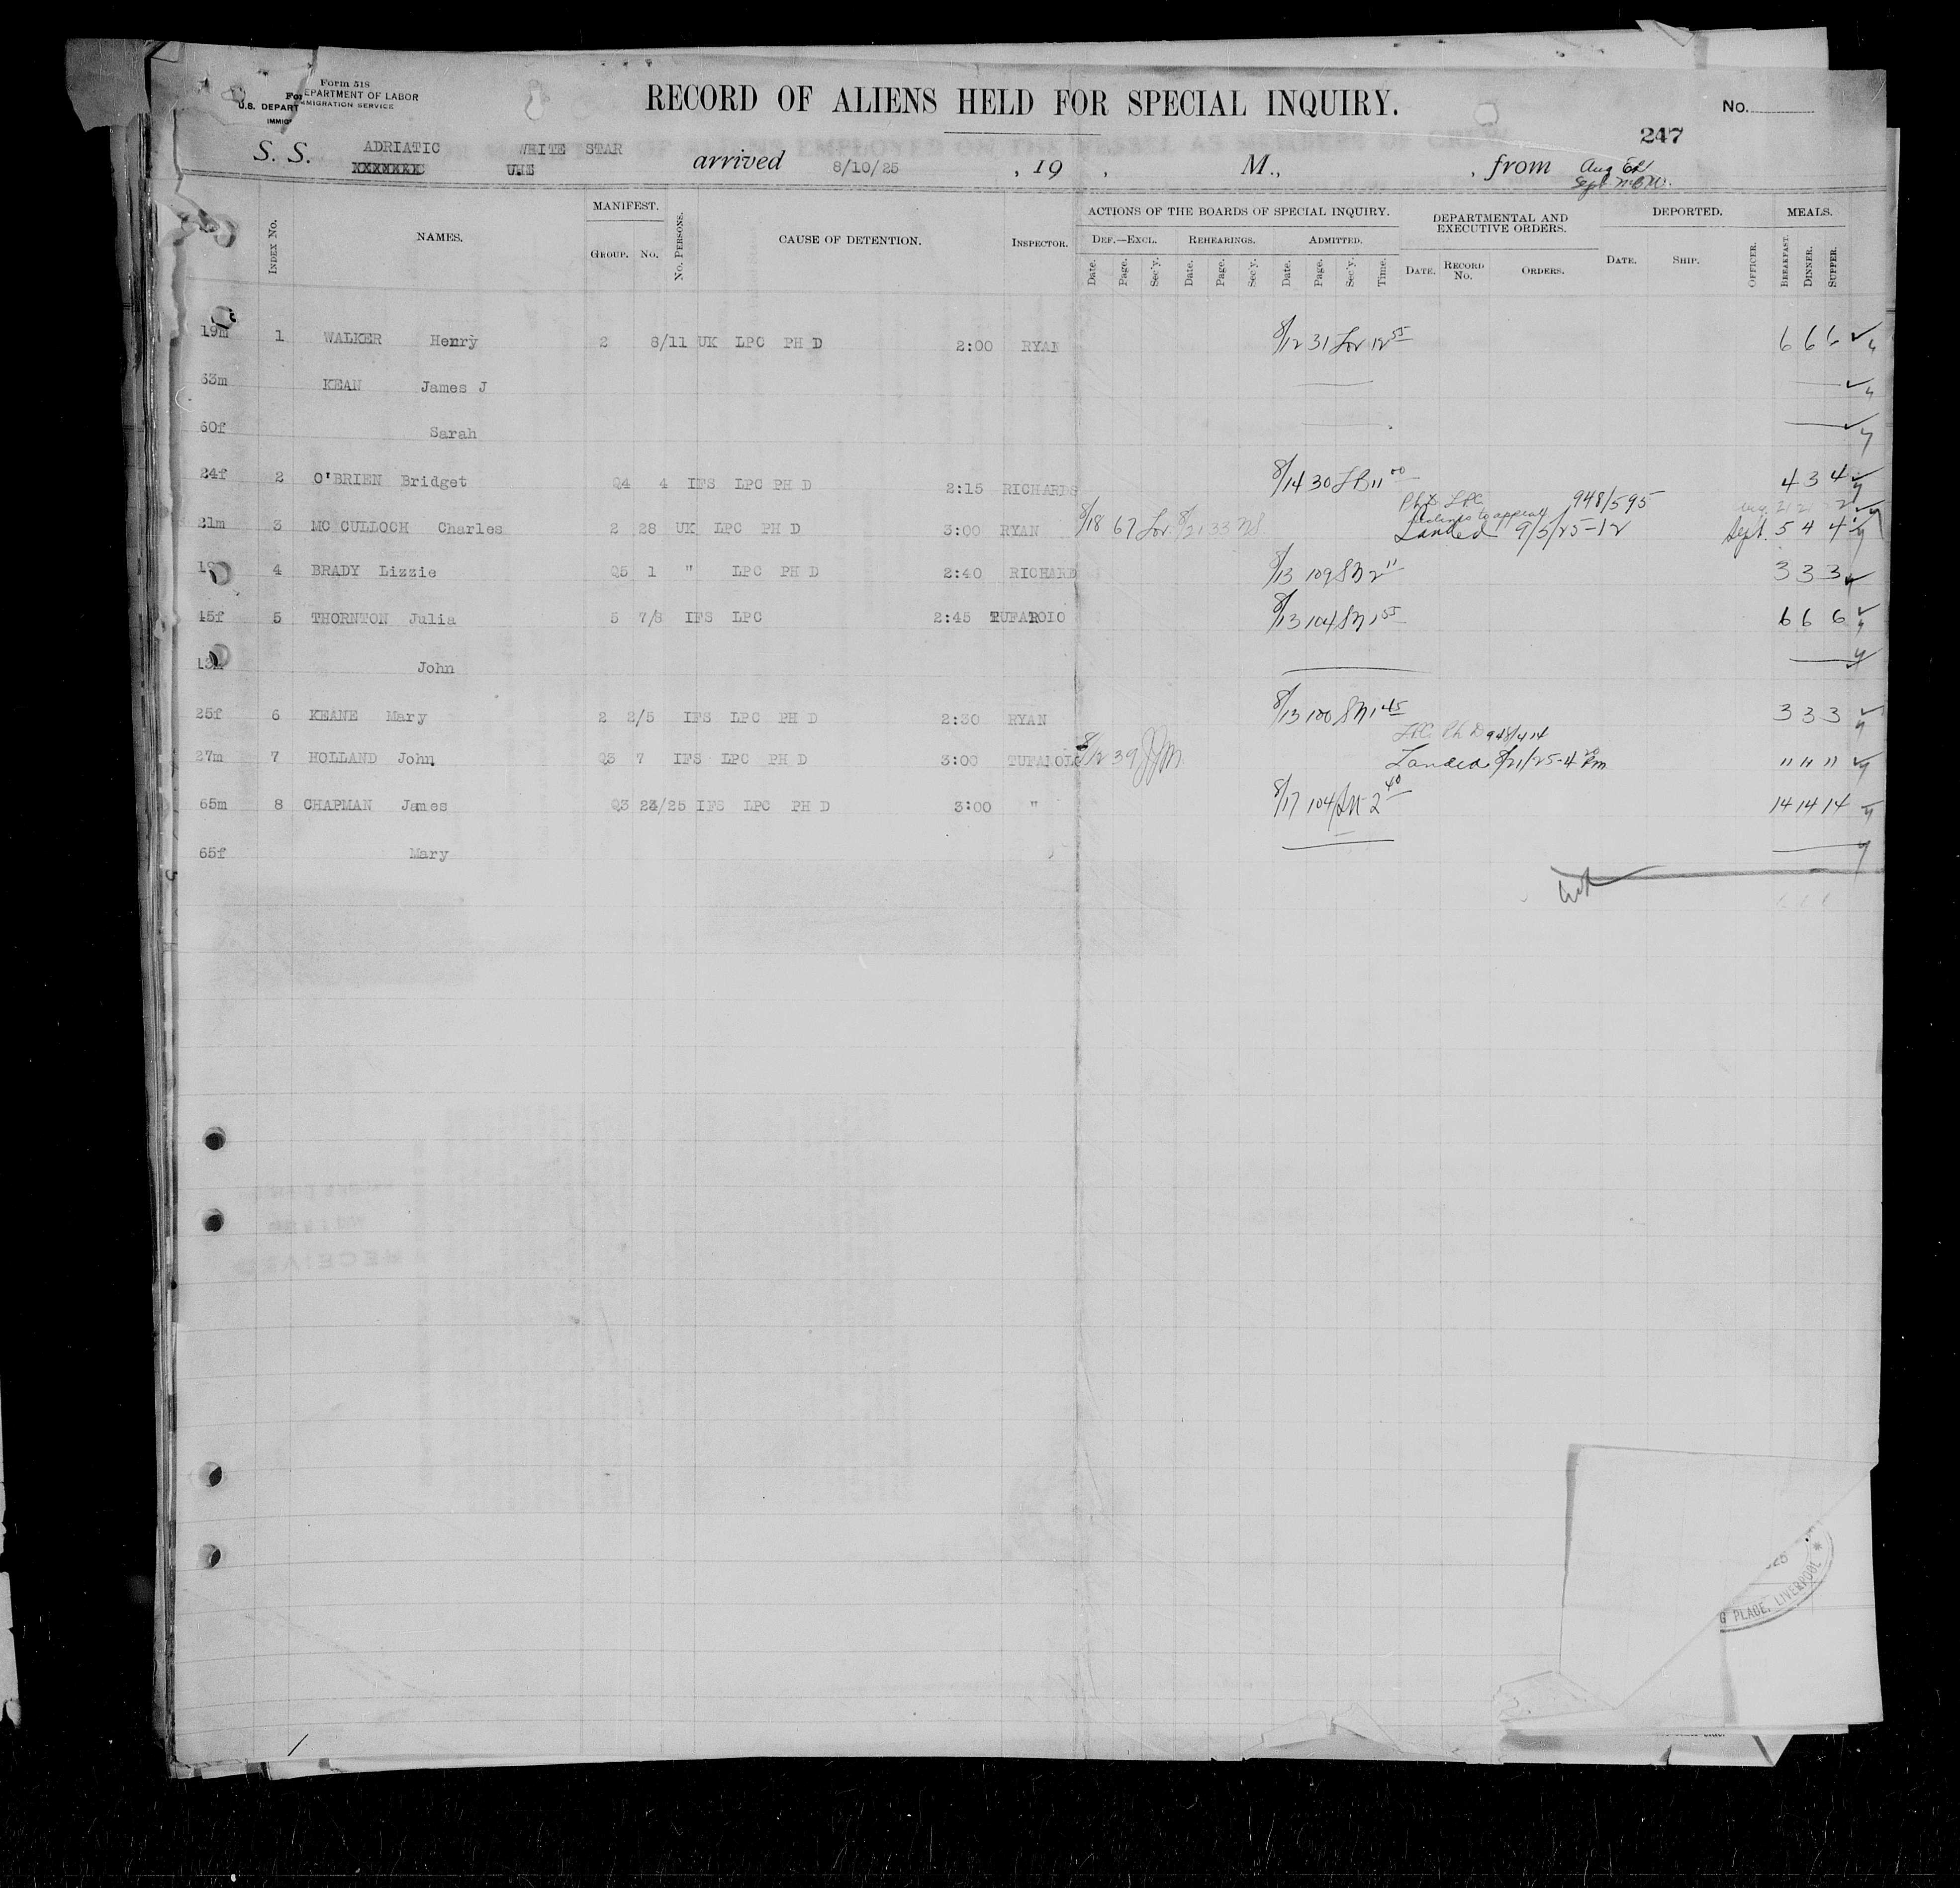 Form 518
EPARTMENT OF LABOR
MMIGRATION SERVICE
For
U.S. DEPART
IMMIG
RECORD OF ALIENS HELD FOR SPECIAL INQUIRY.
No.
247
S. S. ADRIATIC WHITE STAR arrived 8/10/25 , 19 , M., , from Aug
Sept
INDEX No. NAMES. MANIFEST. GROUP. No. No. PERSONS. CAUSE OF DETENTION. INSPECTOR. ACTIONS OF THE BOARDS OF SPECIAL INQUIRY. DEPARTMENTAL AND EXECUTIVE ORDERS. DEPORTED. MEALS.
DEF.—EXCL. REHEARINGS. ADMITTED.
Date. Page. Sec'y. Date. Page. Sec'y. Date. Page. Sec'y. Time. DATE. RECORD No. ORDERS. DATE. SHIP. OFFICER. BREAKFAST. DINNER. SUPPER.
19m 1 WALKER Henry 2 8/11 UK LPC PH D 2:00 RYAN 8/12 31 Lor 12 55 6 6 6
63m KEAN James J
60f Sarah
24f 2 O'BRIEN Bridget Q4 4 IFS LPC PH D 2:15 RICHARDS 8/14 30 LB 11 00 4 3 4
Ph D LPC 948/595
declines to appeal
21m 3 MC CULLOCH Charles 2 28 UK LPC PH D 3:00 RYAN 8/18 67 Lor 8/21 33 Landed 9/5/25-12 Sept. 5 4 4
4 BRADY Lizzie Q5 1 " LPC PH D 2:40 RICHARD 8/13 109 SM 2 11 3 3 3
45f 5 THORNTON Julia 5 7/8 IFS LPC 2:45 8/13 104 SM 1 55 6 6 6
John
25f 6 KEANE Mary 2 2/5 IFS LPC PH D 2:30 RYAN 8/13 100 SM 1 45 3 3 3
Ph D 948/414
27m 7 HOLLAND John Q3 7 IFS LPC PH D 3:00 TUFAROLO 8/12 39 JJM Landed 8/21/25-4 20 Pm " " "
65m 8 CHAPMAN James Q3 24/25 IFS LPC PH D 3:00 " 8/17 104 2 40 14 14 14
65f Mary
G PLACE, LIVERPOOL *